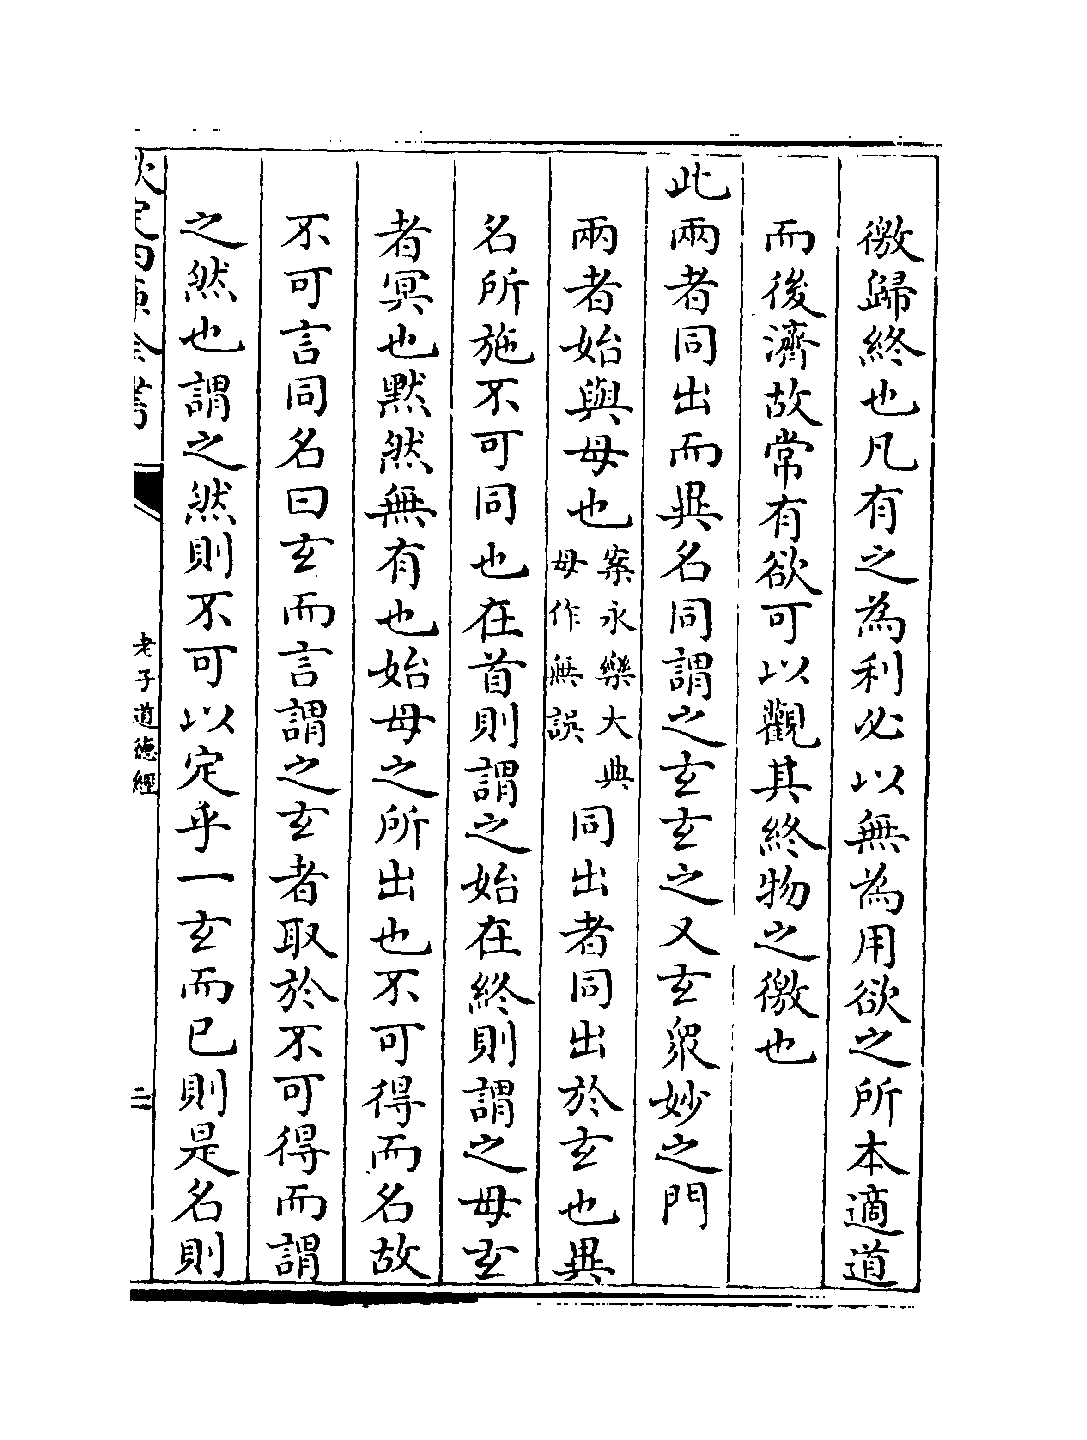 徼歸終也凡有之為利必以無為用欲之所本適道
而後濟故常有欲可以觀其終物之徼也
此兩者同出而異名同謂之玄玄之又玄衆妙之門
兩者始與母也案永樂大典母作無誤同出者同出於玄也異
名所施不可同也在首則謂之始在終則謂之母玄
者冥也默然無有也始母之所出也不可得而名故
不可言同名曰玄而言謂之玄者取於不可得而謂
之然也謂之然則不可以定乎一玄而已則是名則
欽定四庫全書
老子道德經
二